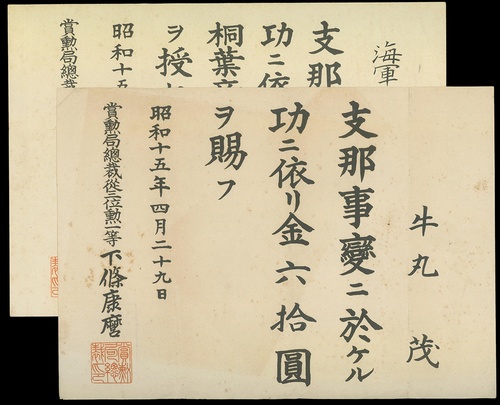 牛丸 茂
支那事變ニ於ケル
功ニ依リ金六拾圓
ヲ賜フ
昭和十五年四月二十九日
賞勲局總裁從三位勲一等下條康麿
海軍
支那
功ニ依
桐葉章
ヲ授
昭和十五
賞勲局總裁